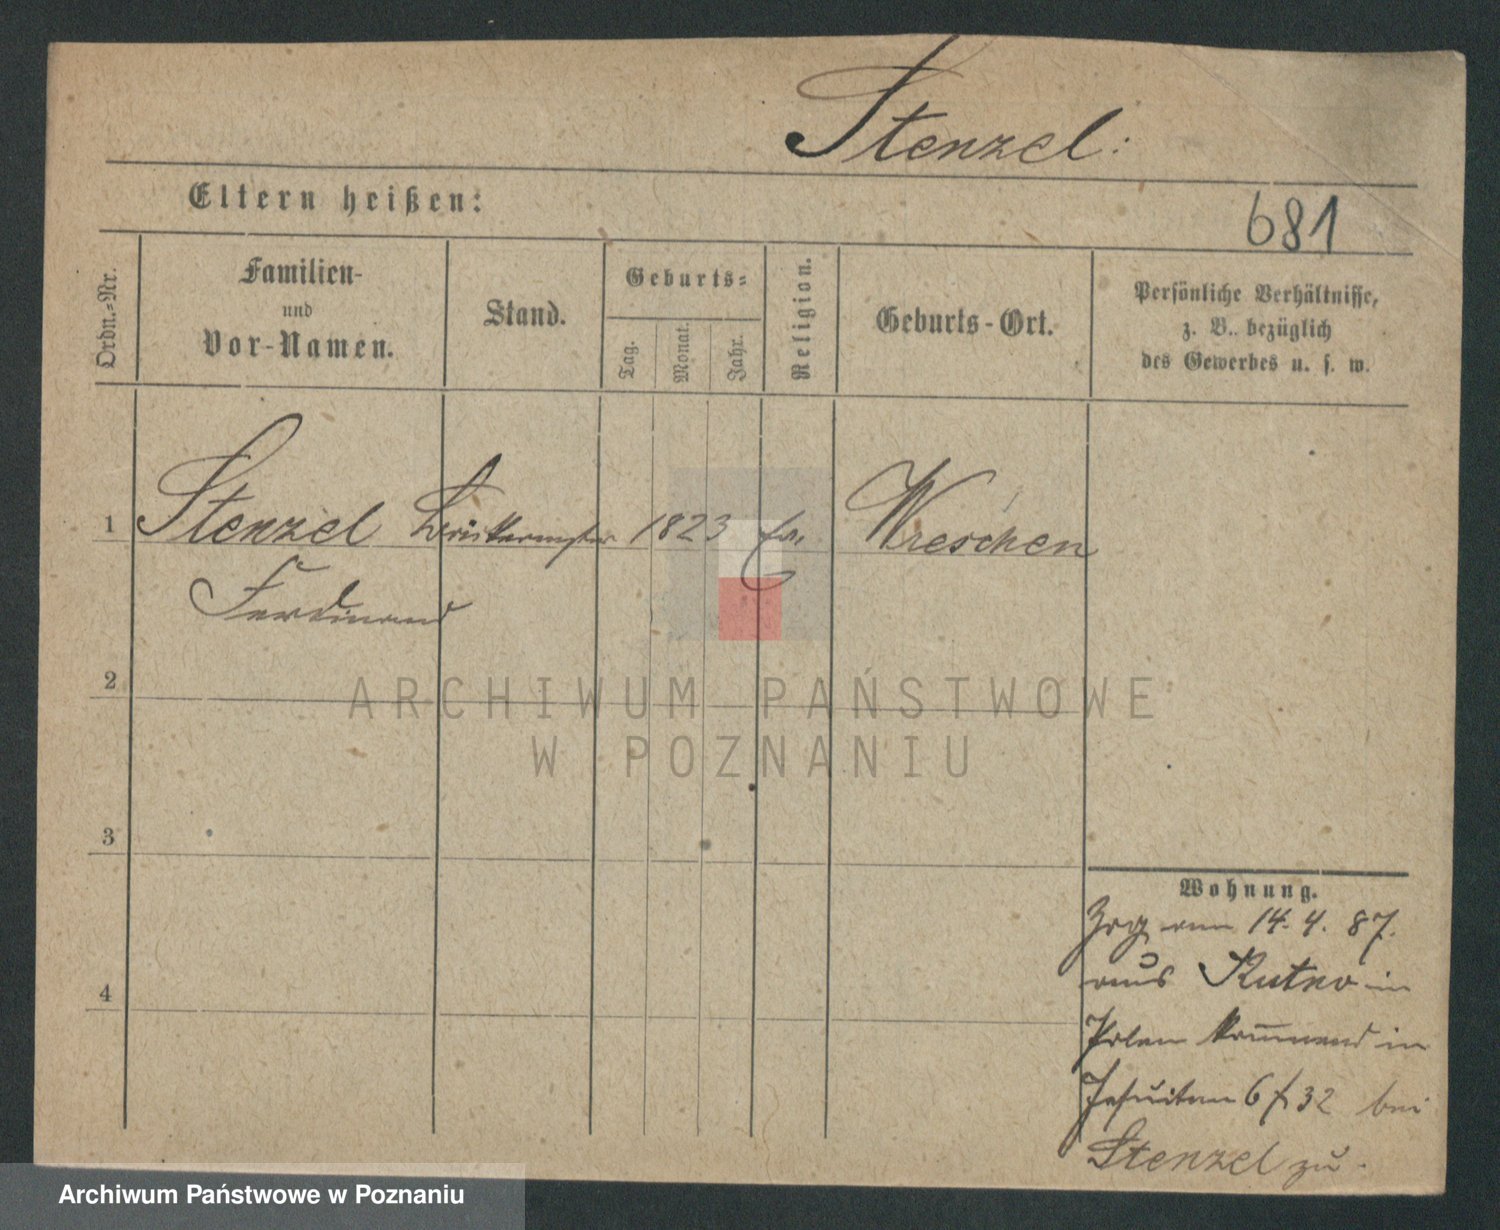 Stenzel:
Eltern heißen:
681
Ordn.-Nr.
Familien-
und
Vor-Namen.
Stand.
Geburts-
Tag.
Monat.
Jahr.
Religion.
Geburts-Ort.
Persönliche Verhältnisse,
z. B. bezüglich
des Gewerbes u. s. w.
1 Stenzel 1823 Ev. Wreschen
Ferdinand
2
3
4
Wohnung.
Zog am 14. 4. 87.
aus Kutno in
Polen kommend in
Jesuiten 32 bei
Stenzel zu.
ARCHIWUM PAŃSTWOWE
W POZNANIU
Archiwum Państwowe w Poznaniu